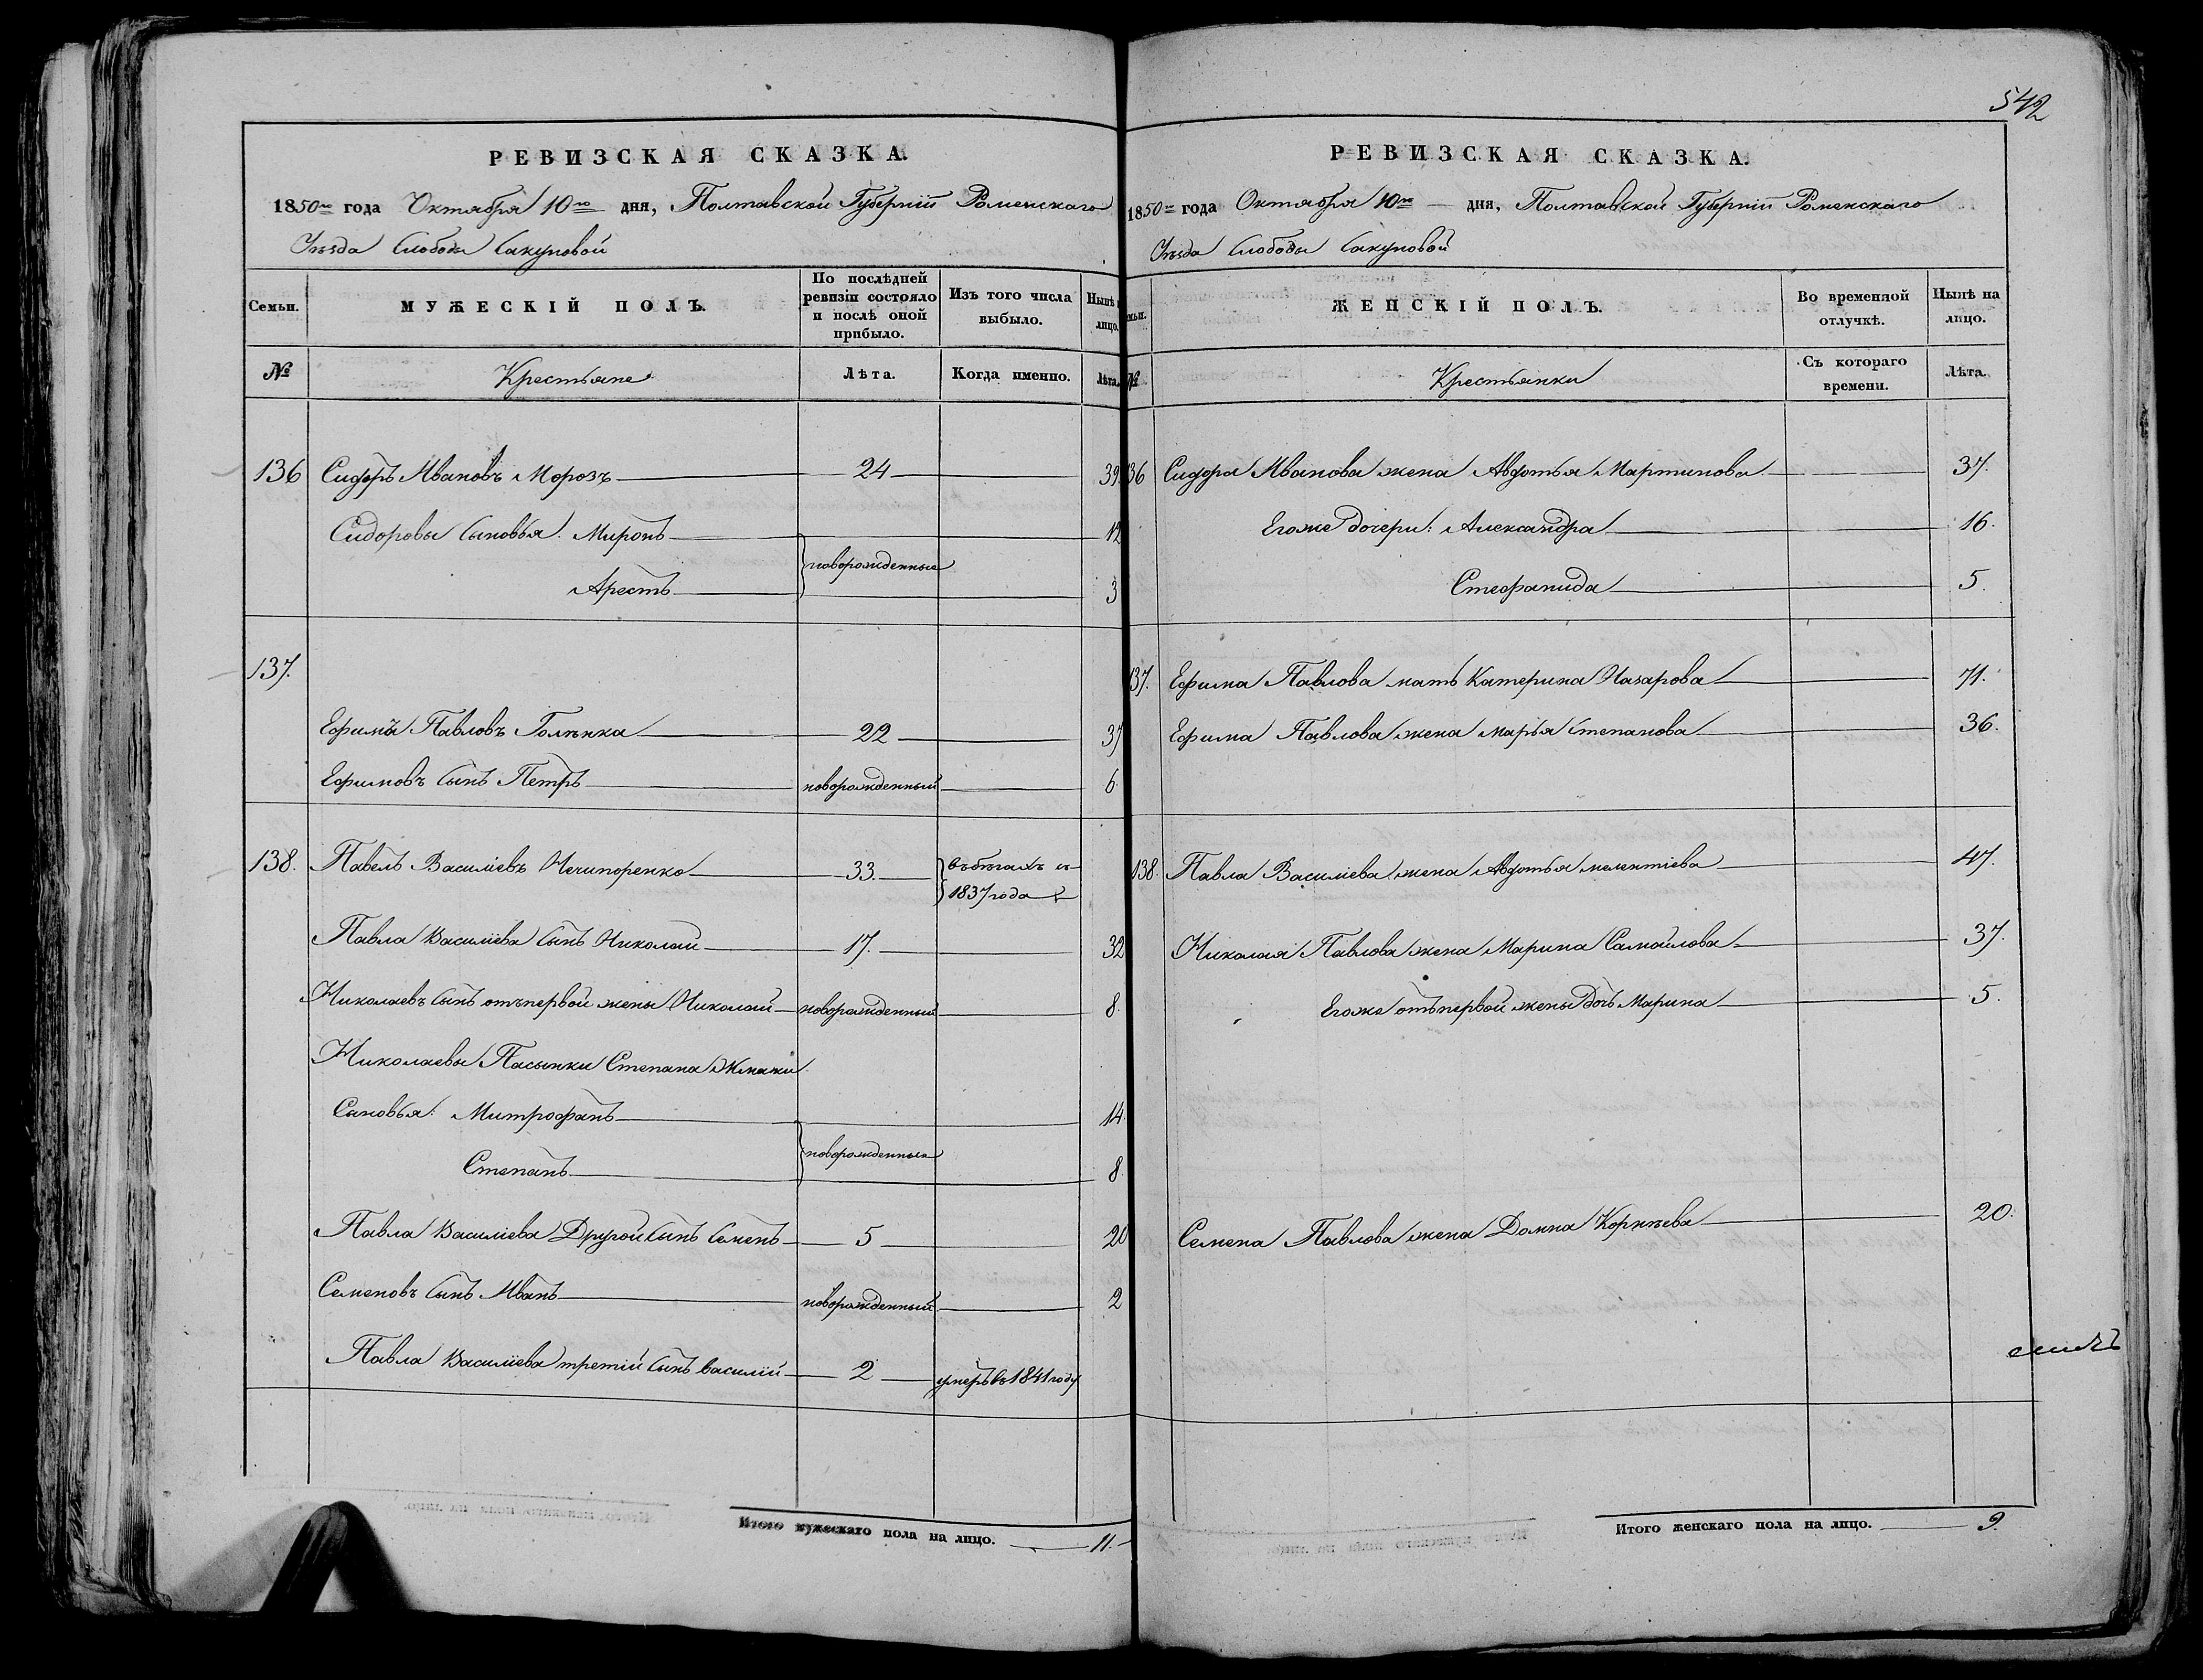 542
РЕВИЗСКАЯ СКАЗКА.
1850го года Октября 10го дня, Полтавской Губерніи Роменскаго
Уѣзда Слободы Сакуновой
Семьи.
МУЖЕСКІЙ ПОЛЪ.
По послѣдней ревизіи состояло и послѣ оной прибыло.
Изъ того числа выбыло.
Нынѣ
лицо.
№
Крестьяне
Лѣта.
Когда именно.
Лѣта.
136 Сидоръ Ивановъ Морозъ 24 39
Сидоровы Сыновья: Миронъ 12
новорожденные
Арестъ 3
137.
Ефимъ Павловъ Голѣнка 22 37
Ефимовъ Сынъ Петръ новорожденный 6
138. Павелъ Василіевъ Нечипоренко 33. въ бѣгахъ съ
1837 года
Павла Василіева Сынъ Николай 17. 32
Николаевъ Сынъ отъ первой жены Николай новорожденный 8.
Николаевы Пасынки Степана
Сыновья: Митрофанъ 14.
новорожденные
Степанъ 8.
Павла Василіева Другой Сынъ Семенъ 5 20
Семеновъ Сынъ Иванъ новорожденный 2
Павла Василіева третій Сынъ Василій 2 умеръ въ 1841 году
Итого мужескаго пола на лицо. 11.
РЕВИЗСКАЯ СКАЗКА.
1850го года Октября 10го дня, Полтавской Губерніи Роменскаго
Уѣзда Слободы Сакуновой
мьи.
ЖЕНСКІЙ ПОЛЪ.
Во временной отлучкѣ.
Нынѣ на лицо.
№
Крестьянки
Съ котораго времени.
Лѣта.
36 Сидора Иванова жена Авдотья Мартинова 37.
Егоже дочери: Александра 16.
Стефанида 5.
137. Ефима Павлова мать Катерина Назарова 71.
Ефима Павлова жена Марья Степанова 36.
138. Павла Василіева жена Авдотья Мелентіева 47.
Николая Павлова жена Марина Самойлова 37.
Егоже отъ первой жены дочь Марина 5.
Семена Павлова жена Домна Корнѣева 20.
Итого женскаго пола на лицо. 9.